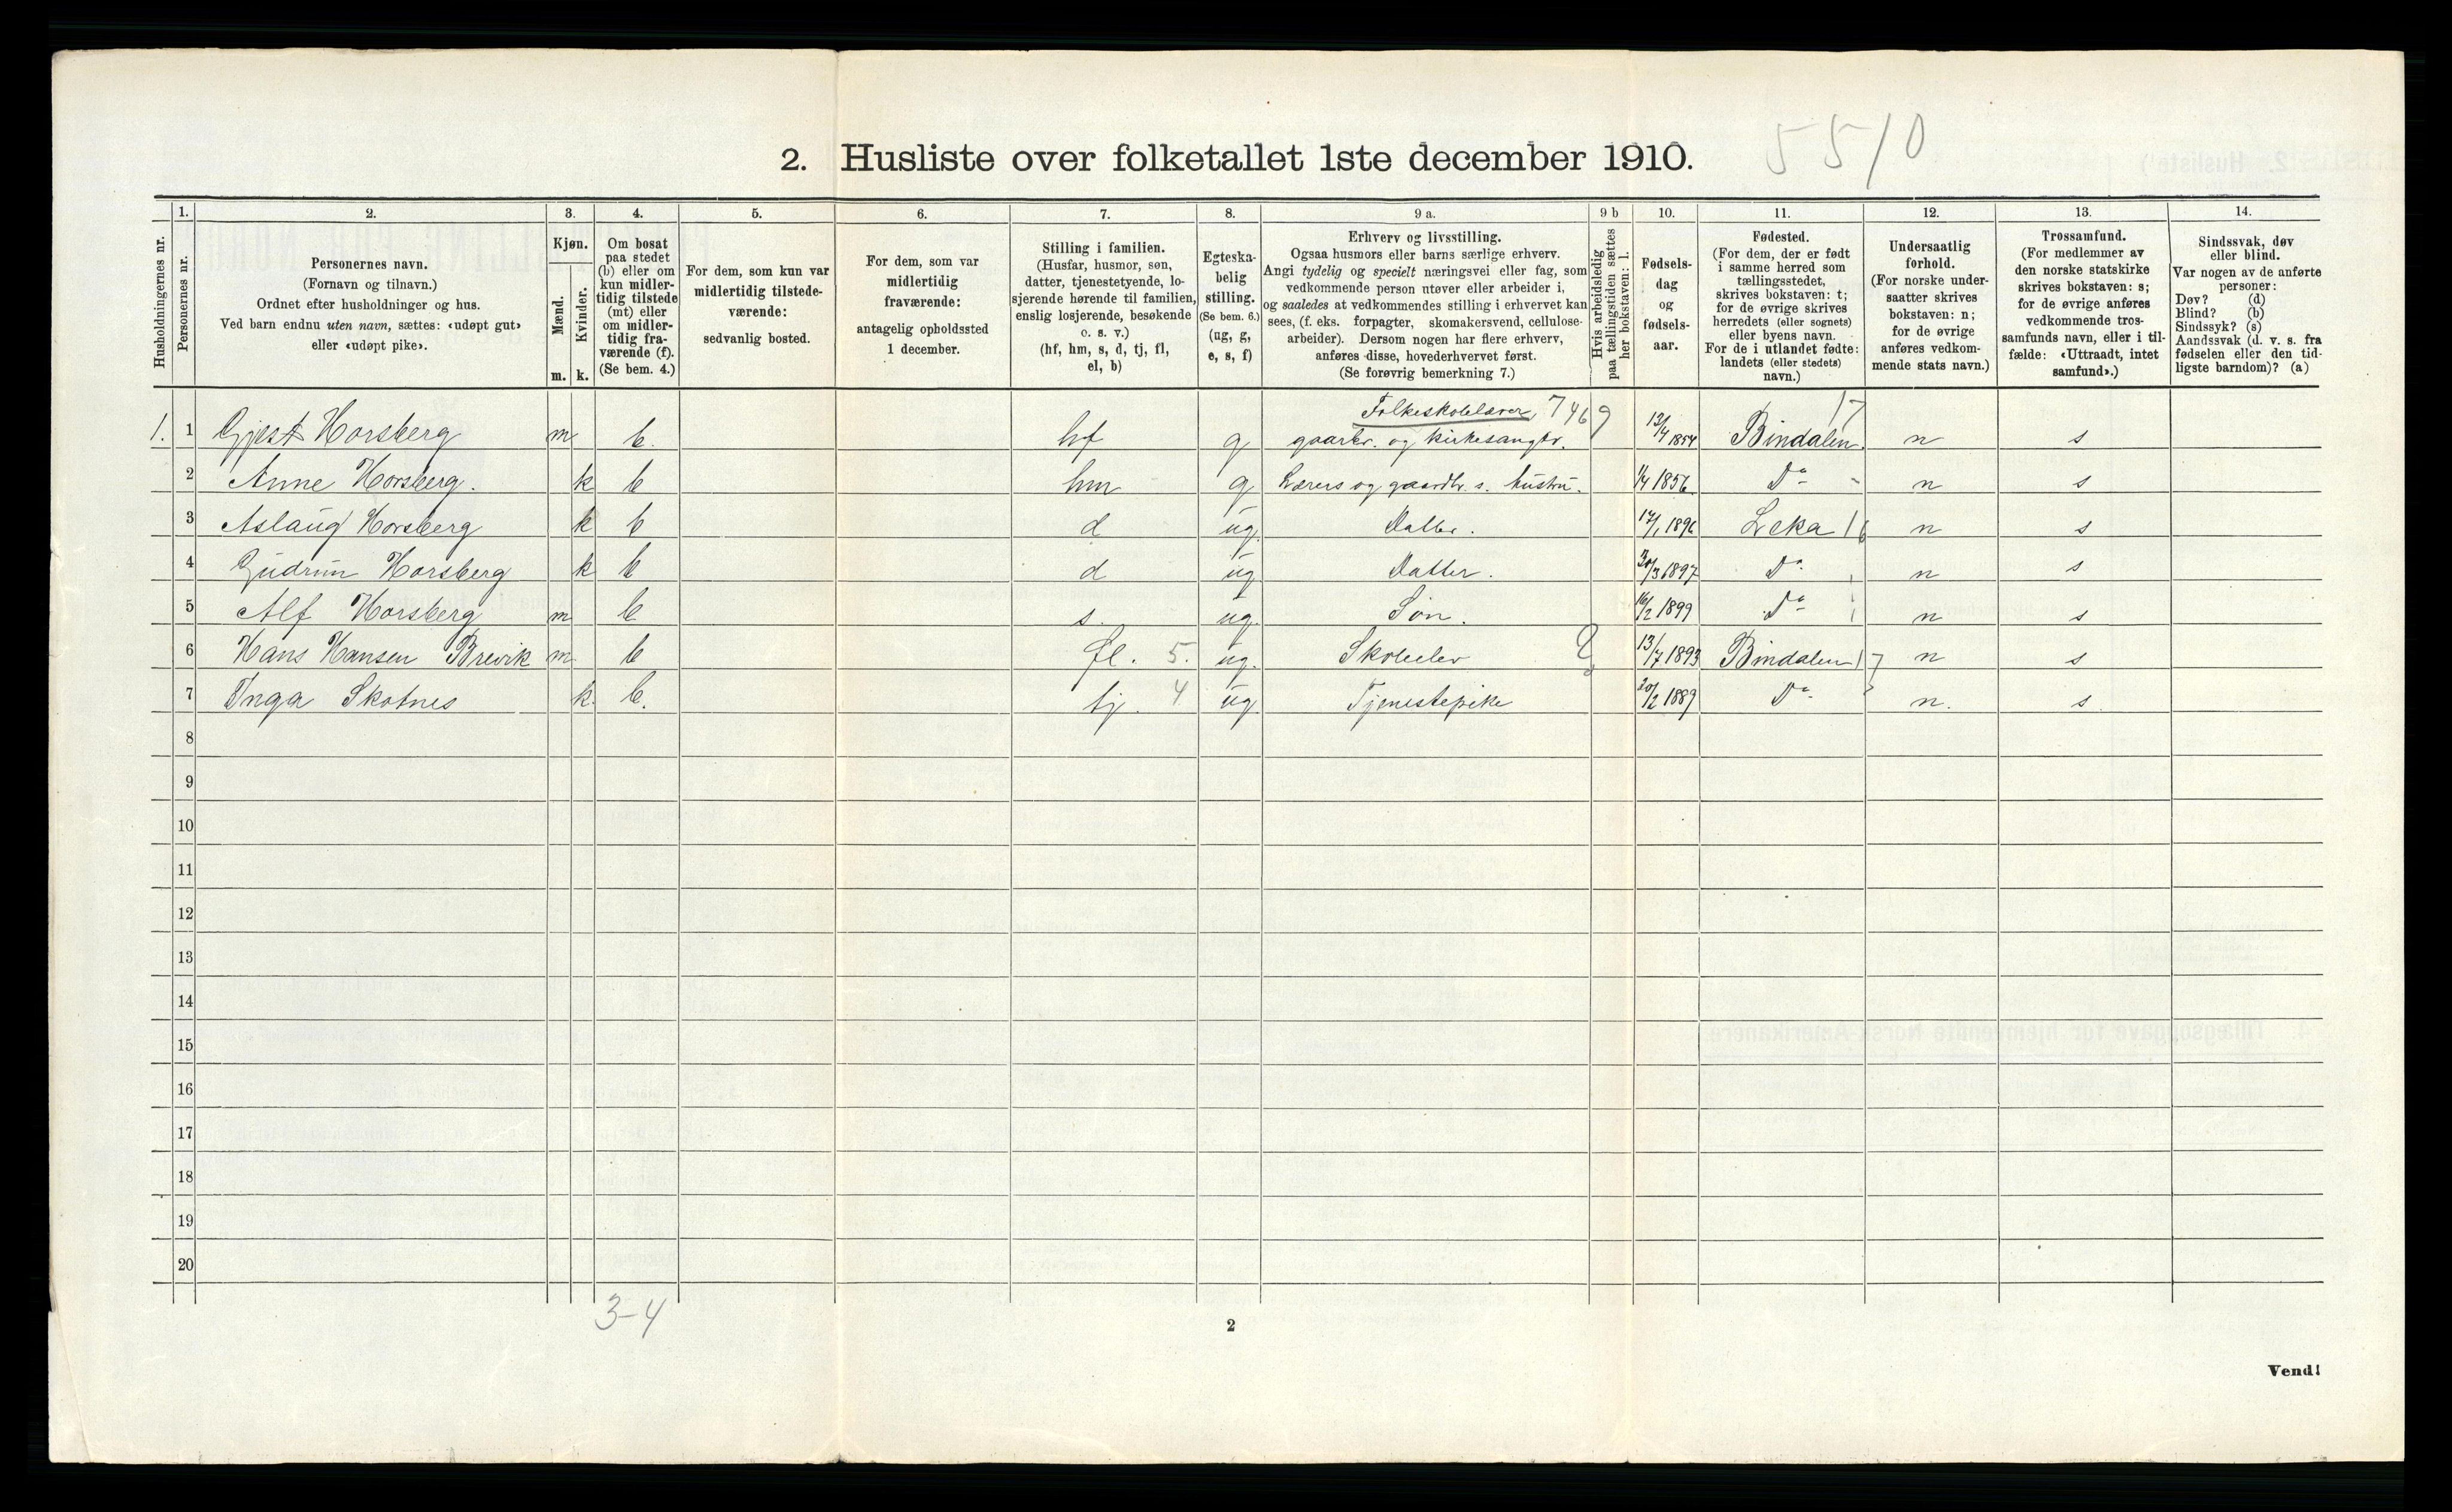 5510
2. Husliste over folketallet 1ste december 1910.
Husholdningernes nr.
1.
Personernes nr.
2.
Personernes navn.
(Fornavn og tilnavn.)
Ordnet efter husholdninger og hus.
Ved barn endnu uten navn, sættes: «udøpt gut»
eller «udøpt pike».
3.
Kjøn.
Mænd.
Kvinder.
m. k.
4.
Om bosat
paa stedet
(b) eller om
kun midler-
tidig tilstede
(mt) eller
om midler-
tidig fra-
værende (f).
(Se bem. 4.)
5.
For dem, som kun var
midlertidig tilstede-
værende:
sedvanlig bosted.
6.
For dem, som var
midlertidig
fraværende:
antagelig opholdssted
1 december.
7.
Stilling i familien.
(Husfar, husmor, søn,
datter, tjenestetyende, lo-
sjerende hørende til familien,
enslig losjerende, besøkende
o. s. v.)
(hf, hm, s, d, tj, fl,
el, b)
8.
Egteska-
belig
stilling.
(Se bem. 6.)
(ug, g,
e, s, f)
9 a.
Erhverv og livsstilling.
Ogsaa husmors eller barns særlige erhverv.
Angi tydelig og specielt næringsvei eller fag, som
vedkommende person utøver eller arbeider i,
og saaledes at vedkommendes stilling i erhvervet kan
sees, (f. eks. forpagter, skomakersvend, cellulose-
arbeider). Dersom nogen har flere erhverv,
anføres disse, hovederhvervet først.
(Se forøvrig bemerkning 7.)
9 b
Hvis arbeidsledig
paa tællingstiden sættes
her bokstaven: l.
10.
Fødsels-
dag
og
fødsels-
aar.
11.
Fødested.
(For dem, der er født
i samme herred som
tællingsstedet,
skrives bokstaven: t;
for de øvrige skrives
herredets (eller sognets)
eller byens navn.
For de i utlandet fødte:
landets (eller stedets)
navn.)
12.
Undersaatlig
forhold.
(For norske under-
saatter skrives
bokstaven: n;
for de øvrige
anføres vedkom-
mende stats navn.)
13.
Trossamfund.
(For medlemmer av
den norske statskirke
skrives bokstaven: s;
for de øvrige anføres
vedkommende tros-
samfunds navn, eller i til-
fælde: «Uttraadt, intet
samfund».)
14.
Sindssvak, døv
eller blind.
Var nogen av de anførte
personer:
Døv? (d)
Blind? (b)
Sindssyk? (s)
Aandssvak (d. v. s. fra
fødselen eller den tid-
ligste barndom)? (a)
Folkeskolelærer, 7469 17
1. 1 Gjest Horsberg m b. hf g gaarbr. og kirkesangbr. 13/4 1854 Bindalen n s
2 Anne Horsberg. k b hm g Lærers og gaardbr. s. hustru. 1/4 1856 Do n s
3 Aslaug Horsberg k b d ug. Datter. 17/1 1896 Leka 16 n s
4 Gudrun Horsberg k b d ug Datter. 30/3 1897 Do n s
5 Alf Horsberg m b s. ug. Søn. 16/2 1899 Do n s
6 Hans Hansen Brevik m b fl. 5. ug. Skoleelev 13/7 1893 Bindalen 17 n s
7 Inga Skotnes k. b. tj. 4 ug Tjenestepike 20/2 1889 Do n. s
8
9
10
11
12
13
14
15
16
17
18
19
20
3-4
2
Vend!